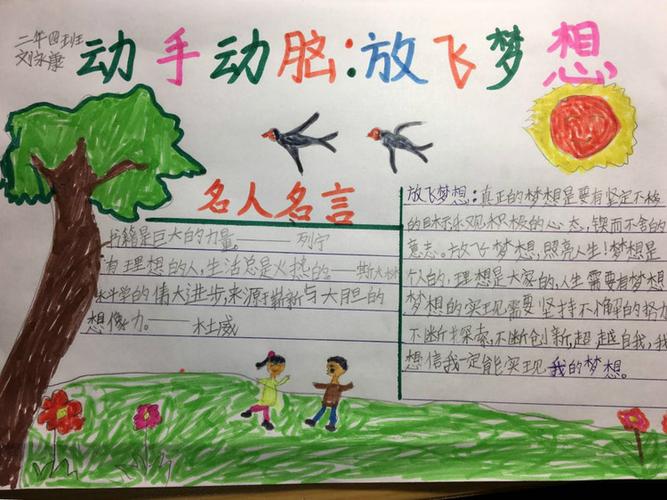 二年四班
刘永康
动手动脑:放飞梦想
名人名言
书籍是巨大的力量。——列宁
有理想的人,生活总是火热的——斯大林
科学的伟大进步,来源于崭新与大胆的
想像力。——杜威
放飞梦想:真正的梦想是要有坚定不移
的目标乐观积极的心态,锲而不舍的
意志。放飞梦想,照亮人生!梦想是
个人的,理想是大家的,人生需要有梦想
梦想的实现需要坚持不懈的努力
不断探索,不断创新,超越自我,我
想信我一定能实现 我的梦想。